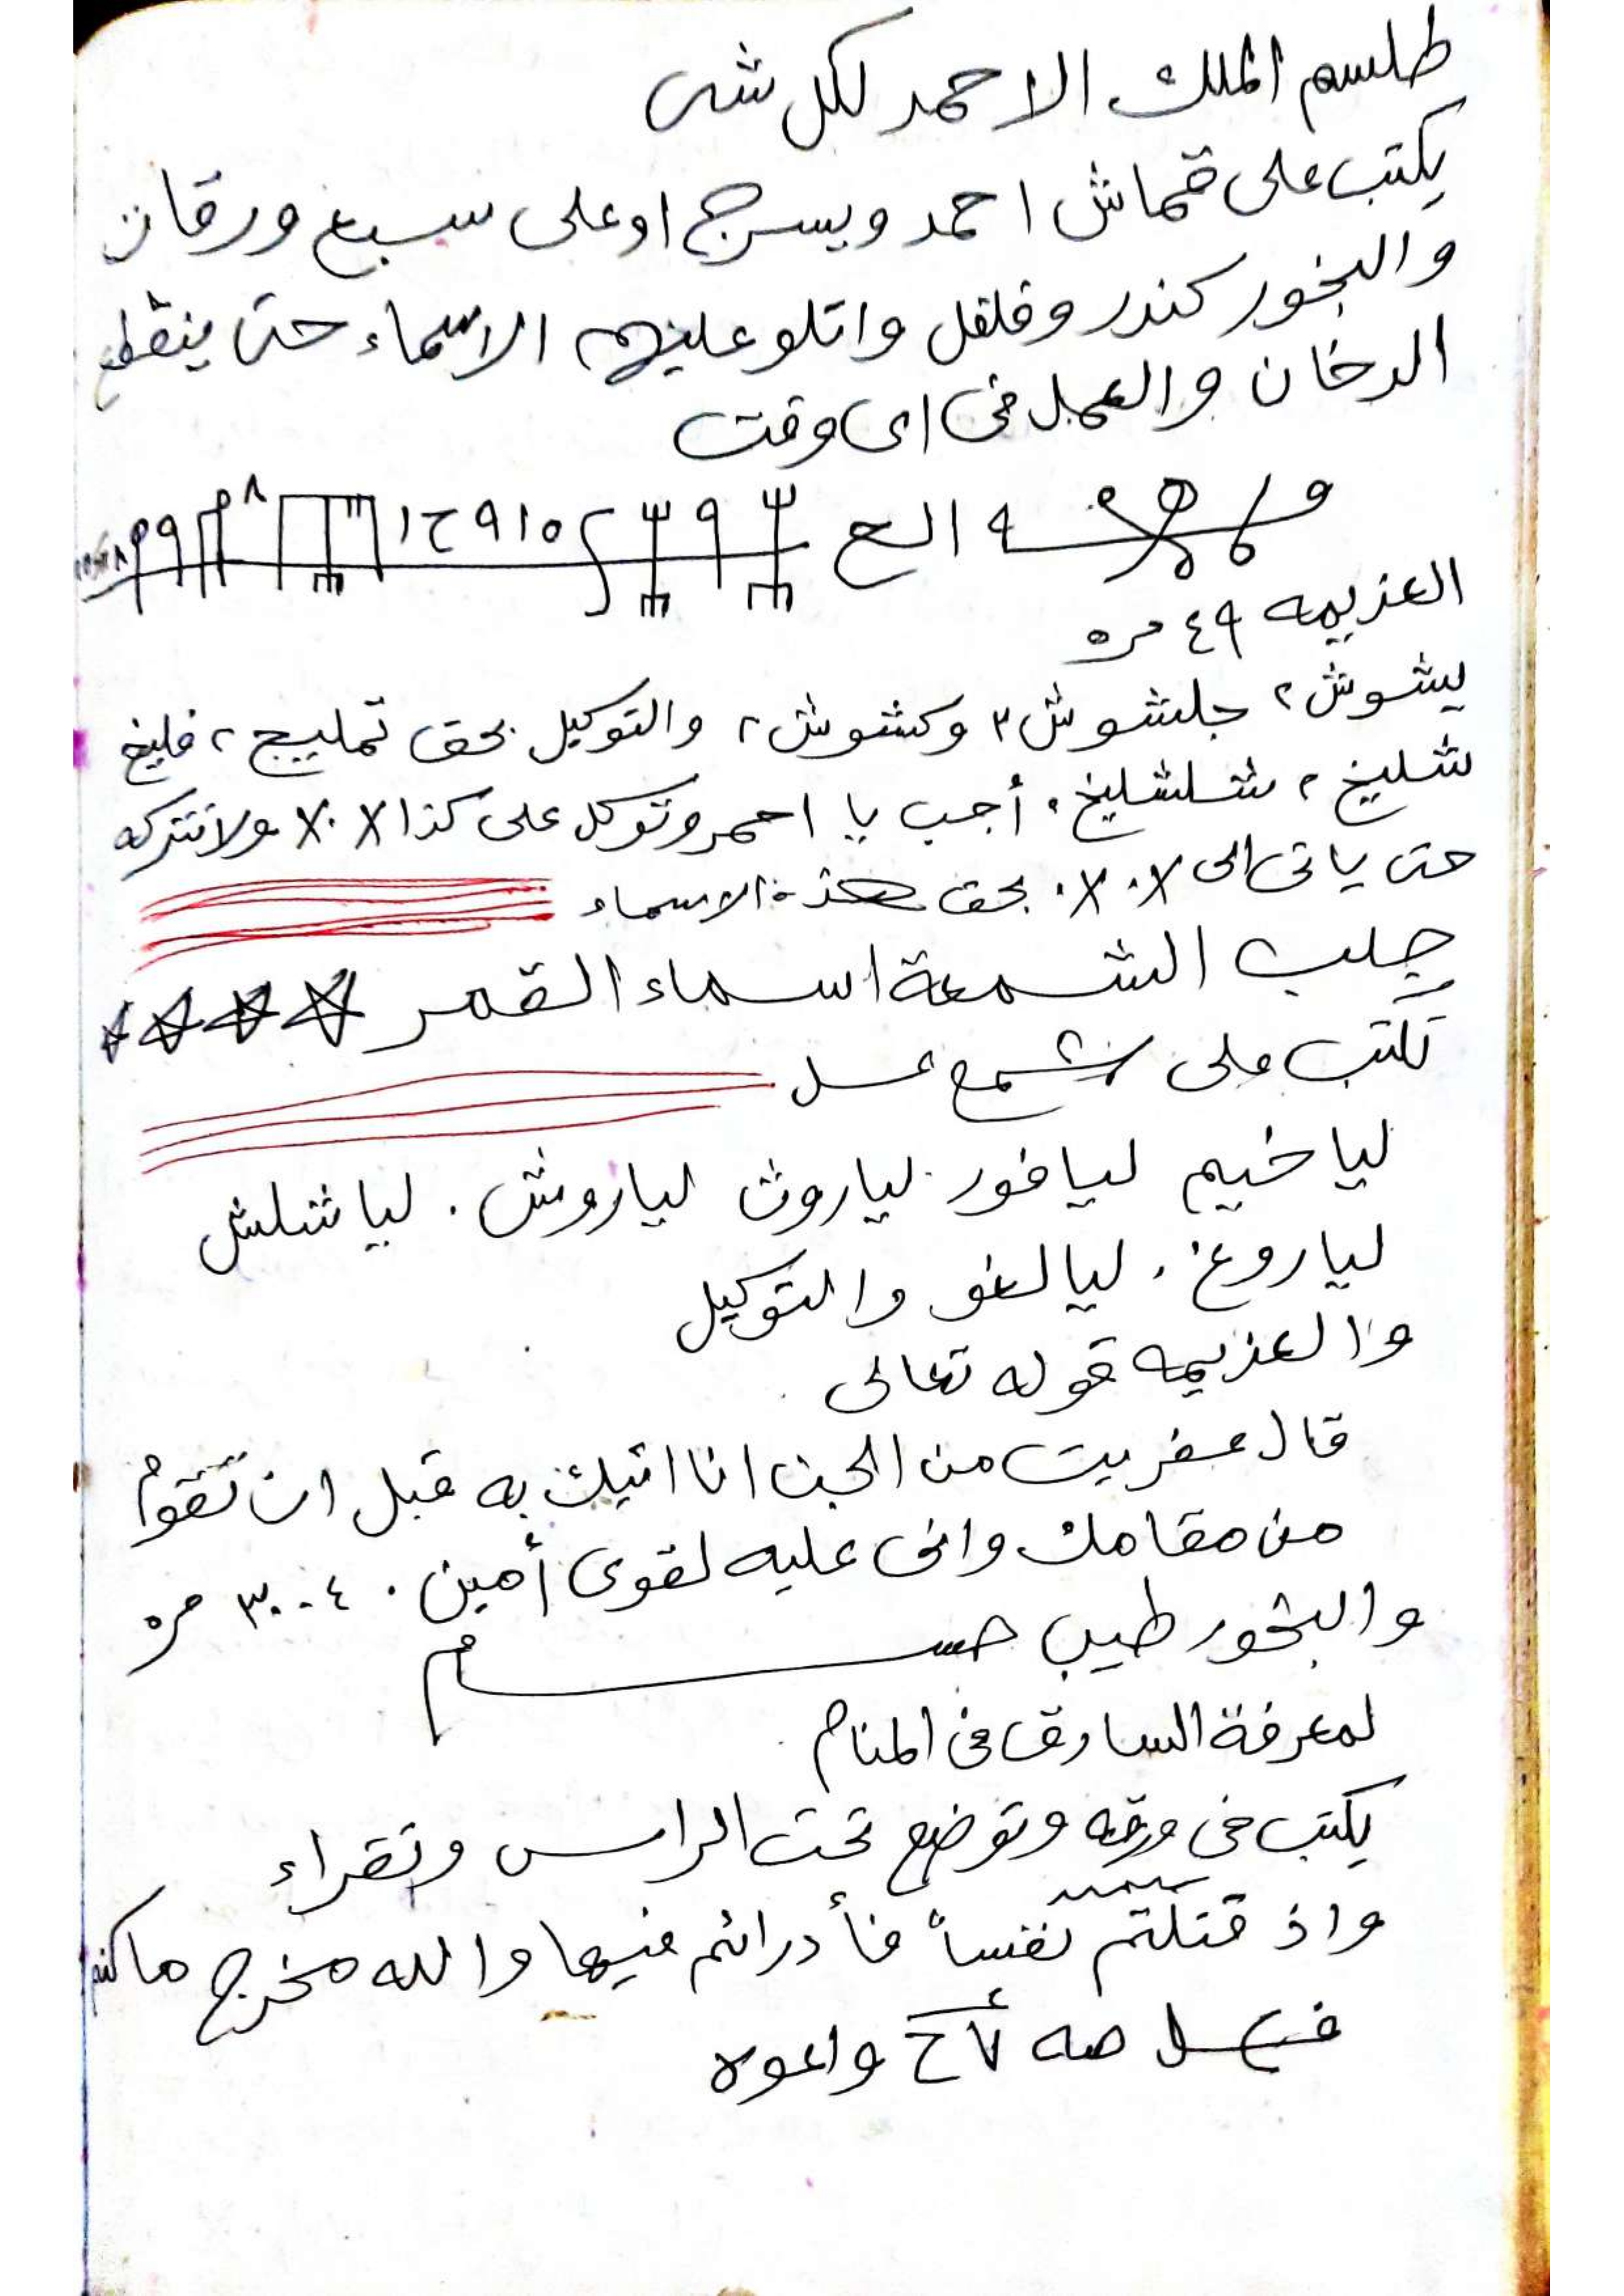 طلسم الملك الاحمر لكل شى
يكتب على قماش احمر ويسرج او على سبع ورقات
والبخور كندر وفلفل واتلو عليهم الاسماء حتى ينقطع
الدخان والعمل فى اى وقت
العزيمه ٤٩ مره
يشوش ٢ جلشوش ٢ وكشوش ٢ والتوكيل بحق تمليج ٢ فليخ
شليخ ٢ شلشليخ ٢ أجب يا احمر وتوكل على كذا ولا تتركه
حتى ياتى الى بحق هذه الاسماء
جلب الشمعة اسماء القمر
تكتب على شمع عسل
لياخيم ليافور لياروث لياروش . لياشلش
لياروغ . ليالغو والتوكيل
والعزيمه قوله تعالى
قال عفريت من الجن انا اتيك به قبل ان تقوم
من مقامك وانى عليه لقوى أمين . مره
والبخور طيب
لمعرفة السارق فى المنام
يكتب فى ورقه وتوضع تحت الراس وتقراء
واذ قتلتم نفساً فأدرائم فيها والله مخرج ما كنتم